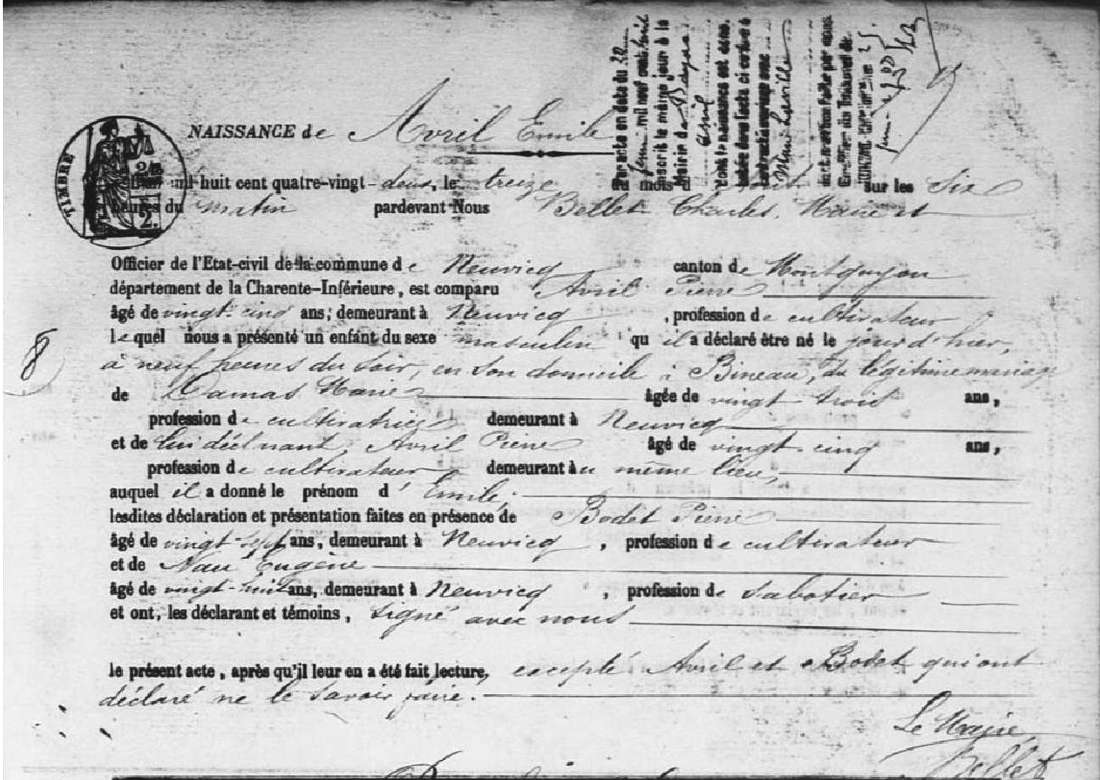 Par acte en date du 20
juin mil neuf cent huit
inscrit le même jour à la
mairie de
dont la naissance est cons-
tatée dans l'acte ci contre a
contracté mariage avec
Marie
mention faite par nous
Greffier du Tribunal de
NAISSANCE de Avril Emile
TIMBRE
2.
L'an mil-huit cent quatre-vingt-deux, le treize du mois d' sur les six
heures du matin pardevant Nous Bellet Charles, Maire et
Officier de l'Etat-civil de la commune de Neuvicq canton de Montguyon
département de la Charente-Inférieure, est comparu Avril Pierre
âgé de vingt-cinq ans; demeurant à Neuvicq, profession de cultivateur
lequel nous a présenté un enfant du sexe masculin qu'il a déclaré être né le jour d'hier,
8
à neuf heures du soir, en son domicile à Bineau, du légitime mariage
de Damas Marie âgée de vingt trois ans,
profession de cultivatrice demeurant à Neuvicq
et de lui déclarant Avril Pierre âgé de vingt-cinq ans,
profession de cultivateur demeurant au même lieu,
auquel il a donné le prénom d'Emile;
lesdites déclaration et présentation faites en présence de Bodet Pierre
âgé de vingt-sept ans, demeurant à Neuvicq, profession de cultivateur
et de Nau Eugène
âgé de vingt-huit ans, demeurant à Neuvicq, profession de sabotier
et ont, les déclarant et témoins, signé avec nous
le présent acte, après qu'il leur en a été fait lecture, excepté Avril et Bodet qui ont
déclaré ne le savoir faire.
Le Maire,
Bellet